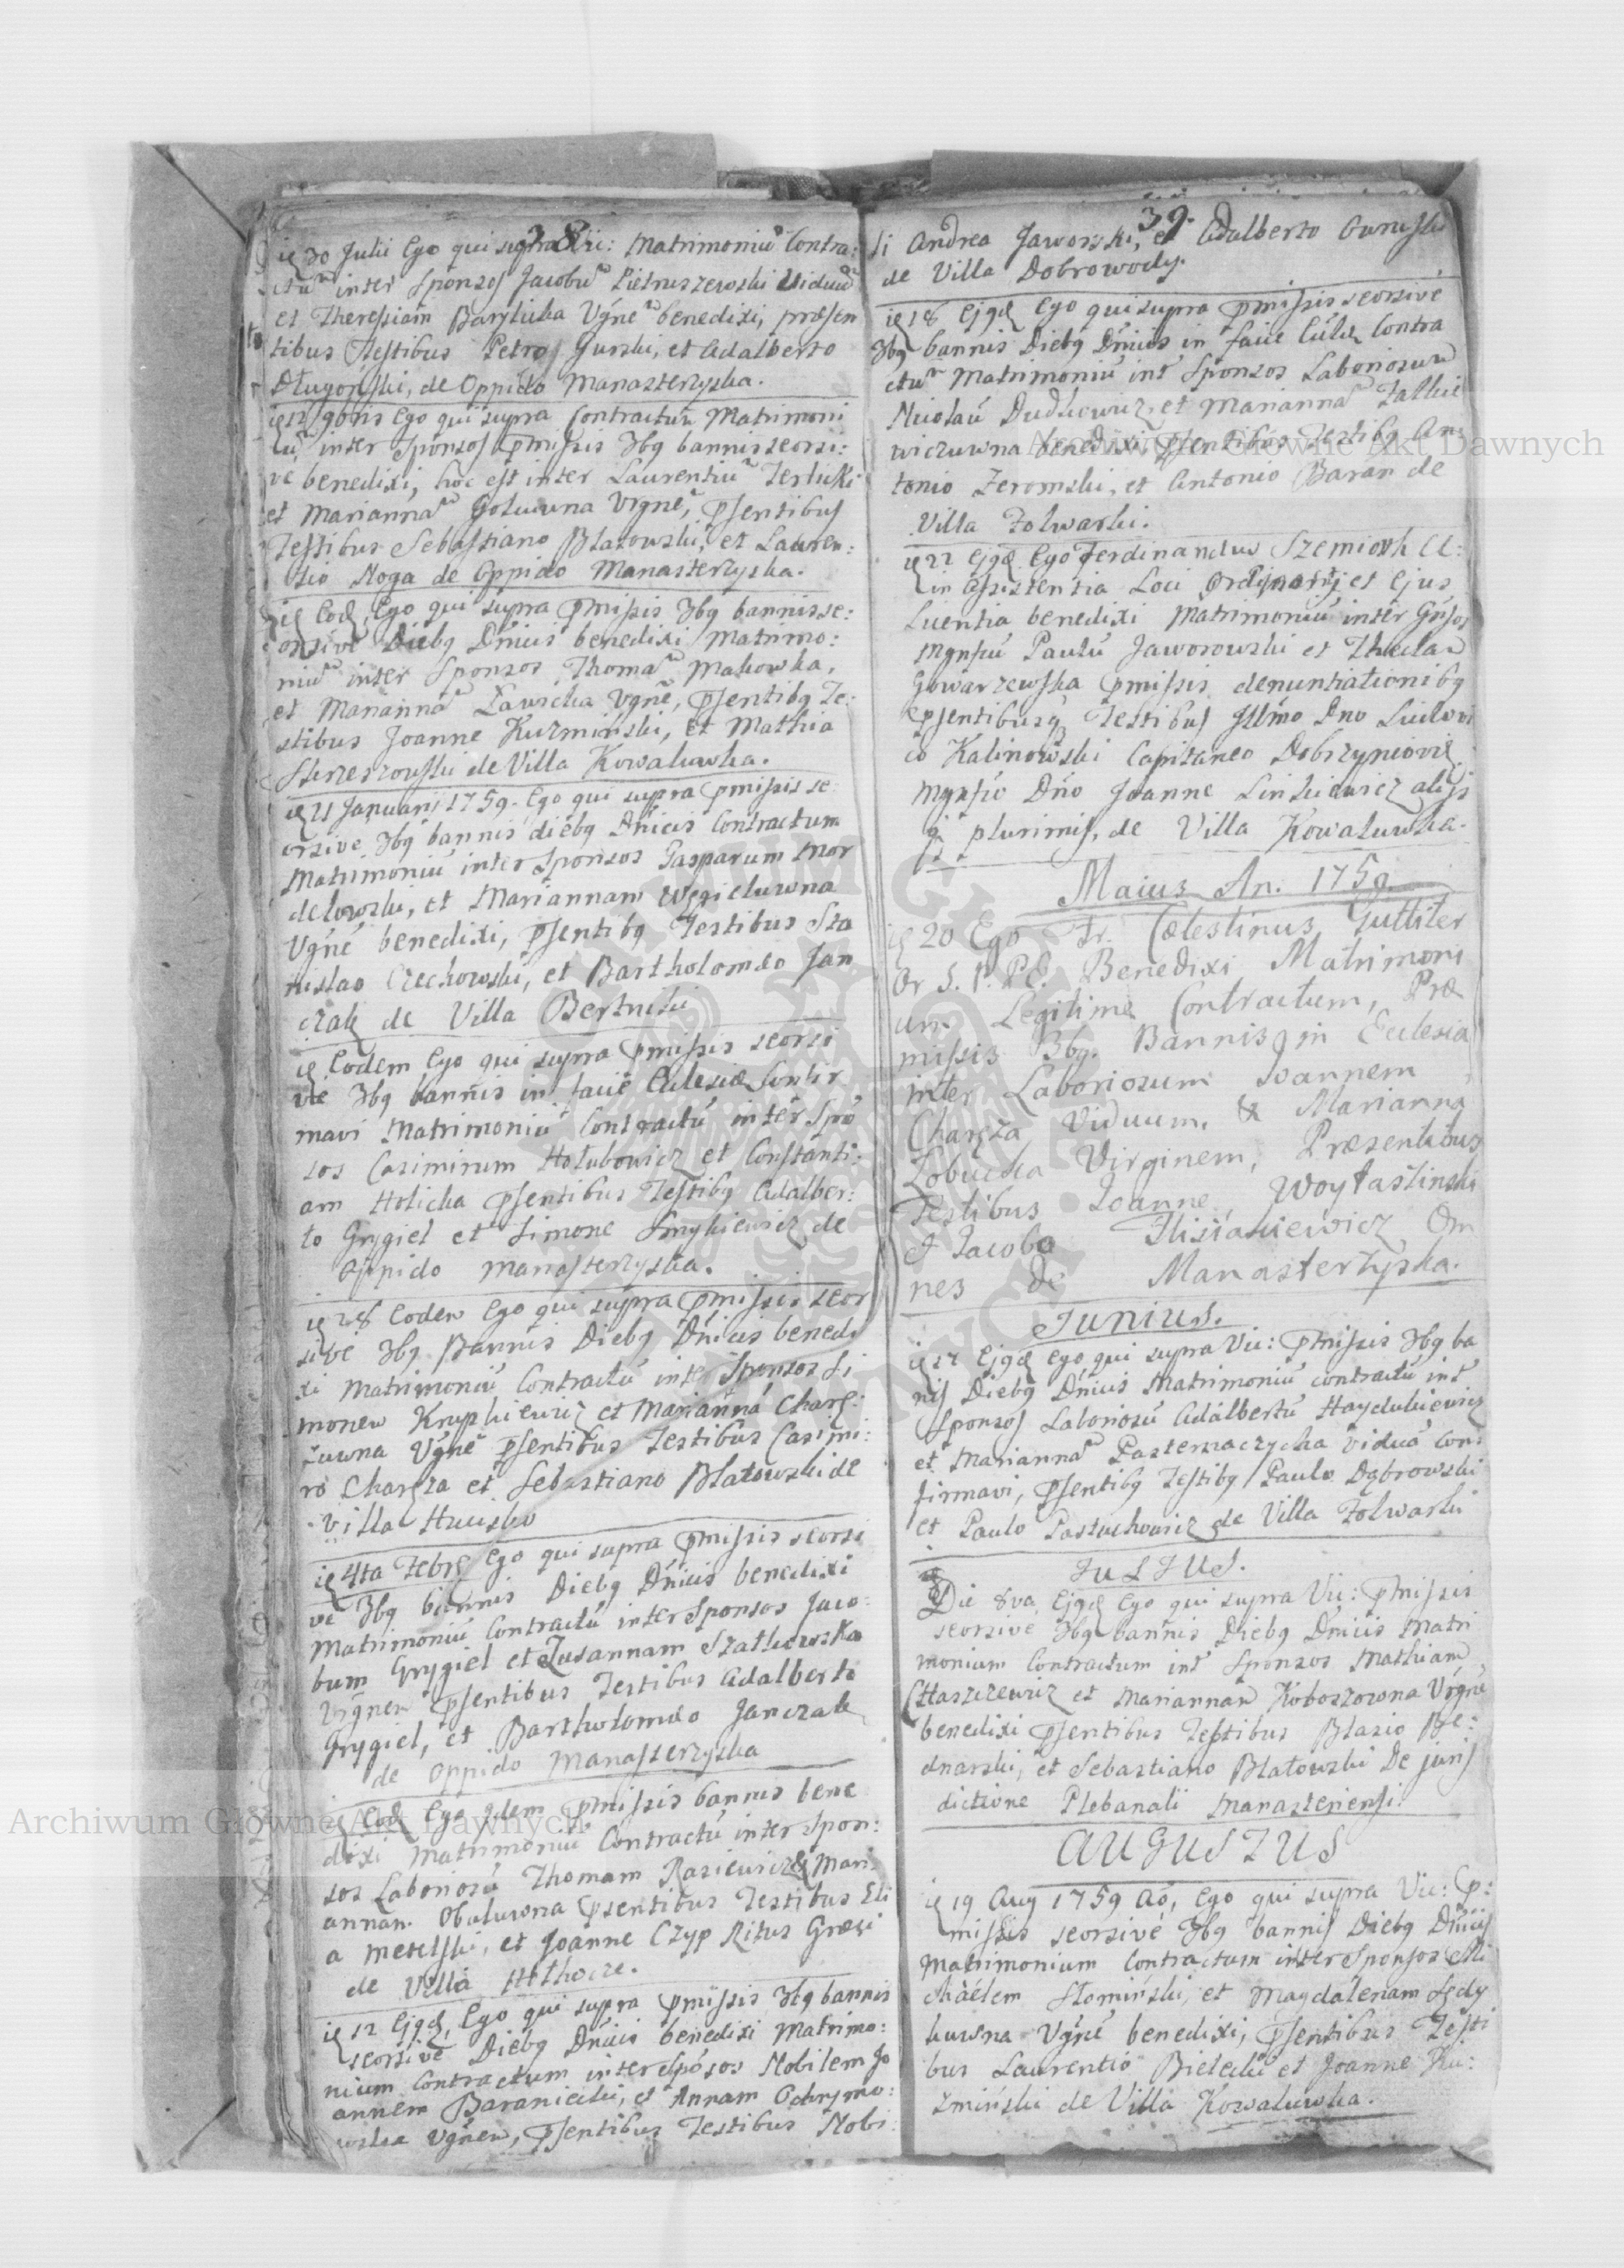 38
ie 30 Julii Ego qui supra Vic: Matrimoniū Contra:
ctū inter Sponsos Jacobū Pietruszewski Viduū
et Theressiam Barsluka Vgnē benedixi, præsen
tibus Testibus Petro Gurski, et Adalberto
Długoński, de Oppido Manasterzyska.
ie 12 9bris Ego qui supra Contractum Matrimoni
ū inter Sponsos Pmissis 3bq bannis seorsi:
ve benedixi, hoc est inter Laurentiū Terlicki
et Mariannā Goluwna Vrgnē, Psentibus
Testibus Sebastiano Błatowski, et Lauren:
tio Noga de Oppido Manasterzyska.
ie Eod. Ego qui supra Pmissis 3bq bannis se:
orsive Diebq Dnicis benedixi Matrimo:
niū inter Sponsos Thomā Makowka,
et Mariannā Ławicka Vgnē, Psentibq Te:
stibus Joanne Kuzminski, et Mathia
de Villa Kowaluwka.
ie 21 Januarij 1759. Ego qui supra Pmissis se
orsive 3bq bannis diebq Dnicis Contractum
Matrimoniū inter Sponsos Gasparum Mor
delowski, et Mariannam Węgieluwna
Vgnē benedixi, Psentibq Testibus Sta
nislao Czechowski, et Bartholomeo Jan
czak de Villa Bertniki
ie Eodem Ego qui supra Pmissis seorsi
ve 3bq bannis in facie Eclesiæ Confir
mavi Matrimoniū Contractū inter Spō
sos Casimirum Hołubowicz et Constanti:
am Holicka Psentibus Testibq Adalber:
to Grygiel et Simone Smykiewicz de
Oppido Manasterzyska.
ie 28 Eodem Ego qui supra Pmissis seor
sive 3bq Bannis Diebq Dnicis benedi
xi Matrimoniū Contractū inter Sponsos Si
monem Krupkiewicz et Mariannā Charę:
żuwna Vgnē Psentibus Testibus Casimi:
ro Charęza et Sebastiano Błatowski de
villa Huciska
ie 4ta Febr. Ego qui supra Pmissis seorsi
ve 3bq bannis Diebq Dnicis benedixi
Matrimoniū Contractū inter Sponsos Jaco:
bum Grygiel et Zusannam Szatkowska
Virgnem Psentibus Testibus Adalberto
Grygiel, et Bartholomeo Janczak
de Oppido Manasterzyska
ie Eod. Ego idem Pmissis bannis bene
dixi Matrimoniū Contractū inter Spon:
sos Laboriosū Thomam Rasiewicz & Mari
annam Obuluwna Psentibus Testibus Eli
a Metelski, et Joanne Czyp Ritus Græci
de Villa
ie 12 Ejqd. Ego qui supra Pmissis 3bq bannis
seorsive Diebq Dnicis benedixi Matrimo:
nium Contractum inter Spōsos Nobilem Jo
annem Baraniecki, et Annam Ochrymo:
wska Vgnem, Psentibus Testibus Nobi:
39.
li Andrea Jaworski, et Adalberto Guruski
de Villa Dobrowody.
ie 18 Ejqd Ego qui supra Pmissis seorsive
3bq bannis Diebq Dnicis in facie Contra
ctū Matrimoniū int Sponsos Laboriosum
Nicolaū Dudkiewicz, et Mariannā Zalkie
wiczuwna benedixi, Psentibus Testibq An:
tonio Zeromski, et Antonio Baran de
Villa Folwarki.
ie 22 Ejqd Ego Ferdinandus Szemioth Cl:
in Assistentia Loci Ordinarij et Ejus
Licentia benedixi Matrimoniū inter
Paulū Jaworowski et Theclam
Gowarzewska Pmissis denuntiationibq
Psentibusq Testibus Illmo Dno Ludovi
co Kalinowski Capitaneo Dobrzynioviē
Dno Joanne Linkiewicz alijs
q plurimis, de Villa Kowaluwka.
Maius An. 1759.
ie 20 Ego Fr. Cælestinus Guttiter
Or S. P. PE. Benedixi Matrimoni
um Legitime Contractum, Præ
missis 3bq. Bannis in Ecclesia
inter Laboriosum Joannem
Charęża Viduum, & Marianna
Łobucka Virginem, Præsentibus
Testibus Joanne Woytasiński
et Jacobo Ilisiakiewicz Om
nes de Manasterżyska.
JUNIUS.
ie 12 Ejqd Ego qui supra Vic: Pmissis 3bq ba
nis Diebq Dnicis Matrimoniū contractū int
Sponsos Laboriosū Adalbertū Haydukiewicz
et Mariannā Pasternaczycha viduā Con:
firmavi, Psentibq Testibq Paulo Dąbrowski
et Paulo Pastuchowicz de Villa Folwarki
JULIUS.
Die 8va Ejqd Ego qui supra Vic: Pmissis
seorsive 3bq bannis Diebq Dnicis Matri
monium Contractum int Sponsos Mathiam
Haszczewicz et Mariannam Koboszowna Vrgnē
benedixi Psentibus Testibus Blasio Be:
dnarski, et Sebastiano Błatowski De juris
dictione Plebanali Manasteriensi.
AUGUSTUS
ie 19 Aug 1759 Aō, Ego qui supra Vic: P:
missis seorsive 3bq bannis Diebq Dnicis
Matrimonium Contractum inter Sponsos Mi
chāelem Słomiński, et Magdalenam Sędy
kuwna Vgnē benedixi, Psentibus Testi
bus Laurentio Bielecki et Joanne Ku:
zmiński de Villa Kowaluwka.
Archiwum Główne Akt Dawnych
Archiwum Główne Akt Dawnych